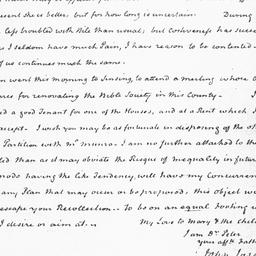 resent she is better, but for how long is uncertain. During
less troubled with Bile than usual; but Costiveness success
s I seldom have much Pain, I have reason to be contented.
of us continues much the same.
n went this morning to Sinsing, to attend a meeting whose
ures for renovating the Bible Society in this County.
d a good Tenant for one of the Houses, and at a Rent which
accept. I wish you may be as fortunate in disposing of the ot
Partition with Mr Munro. I am no further attached to the
led than as it may obviate the Risque of inequality in futur
modes having the like Tendency, will have my Concurren
any Plan that may occur or be proposed, this object w
escape your Recollection. To be on an equal footing w
I desire or aim at.
My Love to Mary & the Chil
I am Dr Peter
your afft. Fath
John Jay